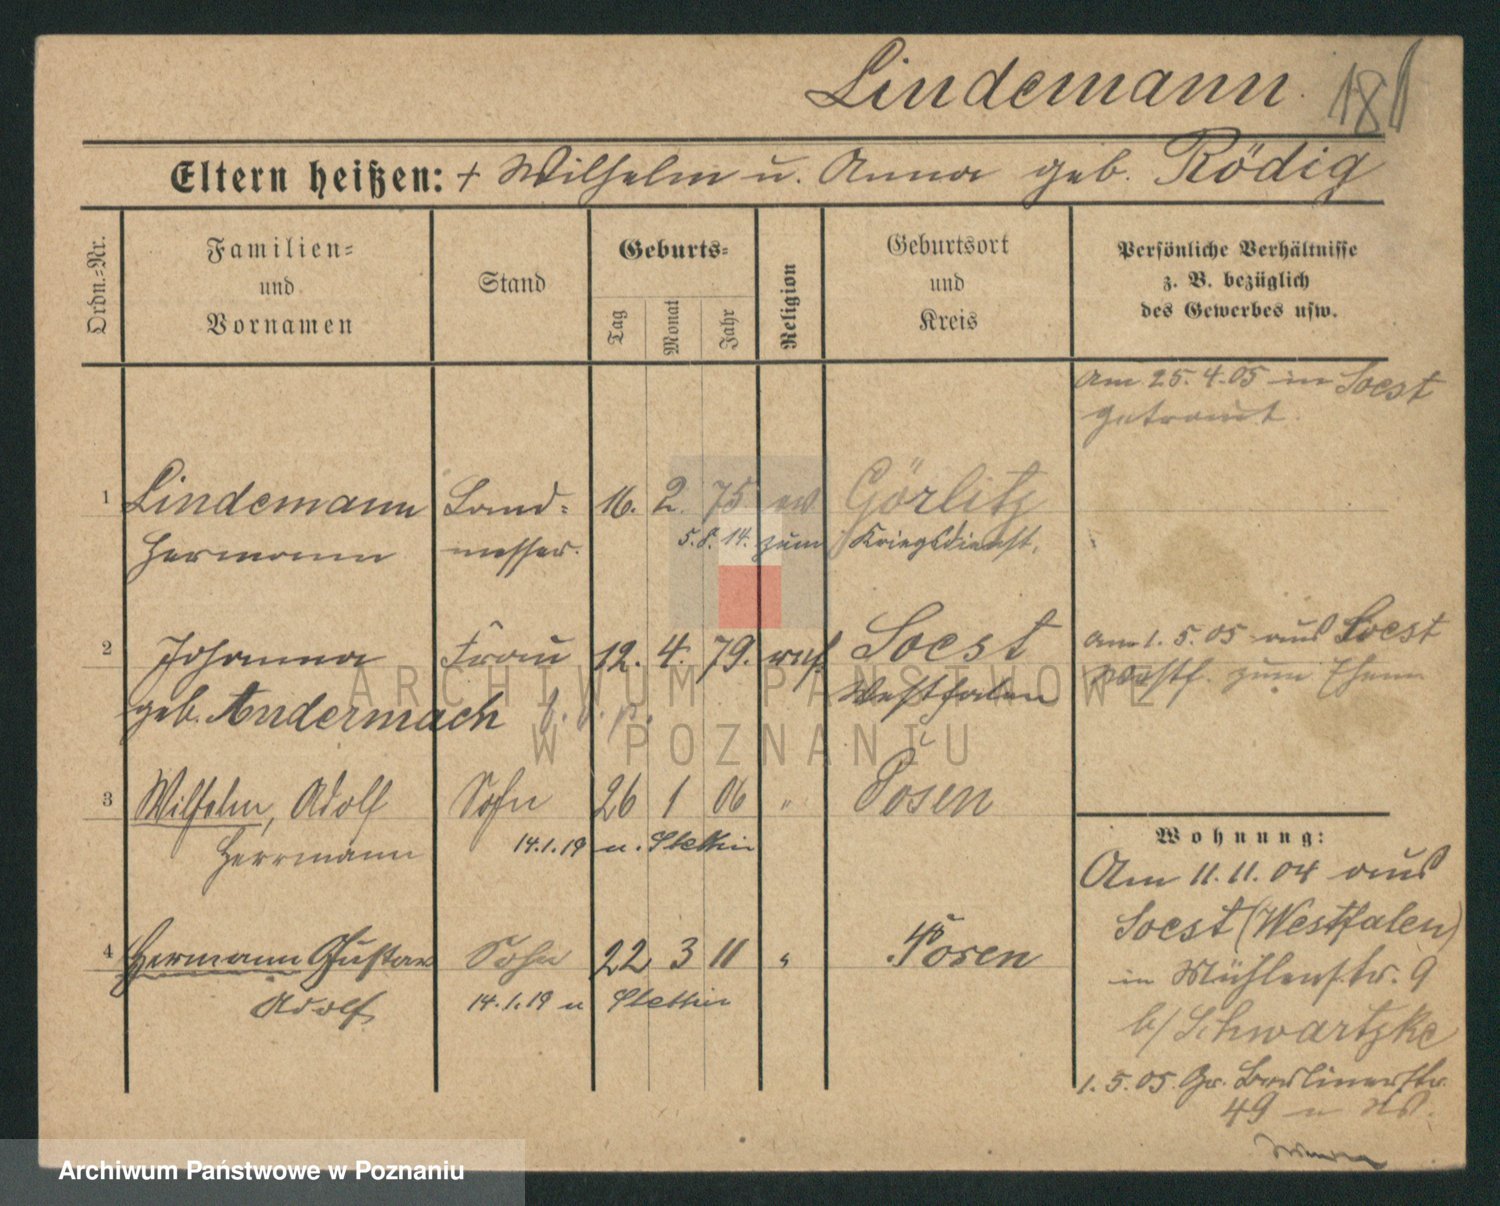 Lindemann. 181
Eltern heißen: + Wilhelm u. Anna geb. Rödig
Ordn.=Nr.
Familien=
und
Vornamen
Stand
Geburts=
Tag
Monat
Jahr
Religion
Geburtsort
und
Kreis
Persönliche Verhältnisse
z. B. bezüglich
des Gewerbes usw.
Am 25.4.05 in Soest
getraut.
1 Lindemann Land= 16. 2. 75 ev Görlitz
Hermann messer. 5.8.14. zum Kriegsdienst.
2 Johanna Frau 12. 4. 79. ref. Soest
geb. Andermach Westfalen
am 1.5.05 aus Soest
Westf. zum Ehem
3 Wilhelm, Adolf Sohn 26 1 06 " Posen
Herrmann 14.1.19 u. Stettin
4 Hermann Gustav Sohn 22 3 11 " Posen
Adolf 14.1.19 u Stettin
Wohnung:
Am 11.11.04 aus
Soest (Westfalen)
in Mühlenstr. 9
b/ Schwartzke
1.5.05. Gr. Berlinerstr.
49
ARCHIWUM PAŃSTWOWE
W POZNANIU
Archiwum Państwowe w Poznaniu